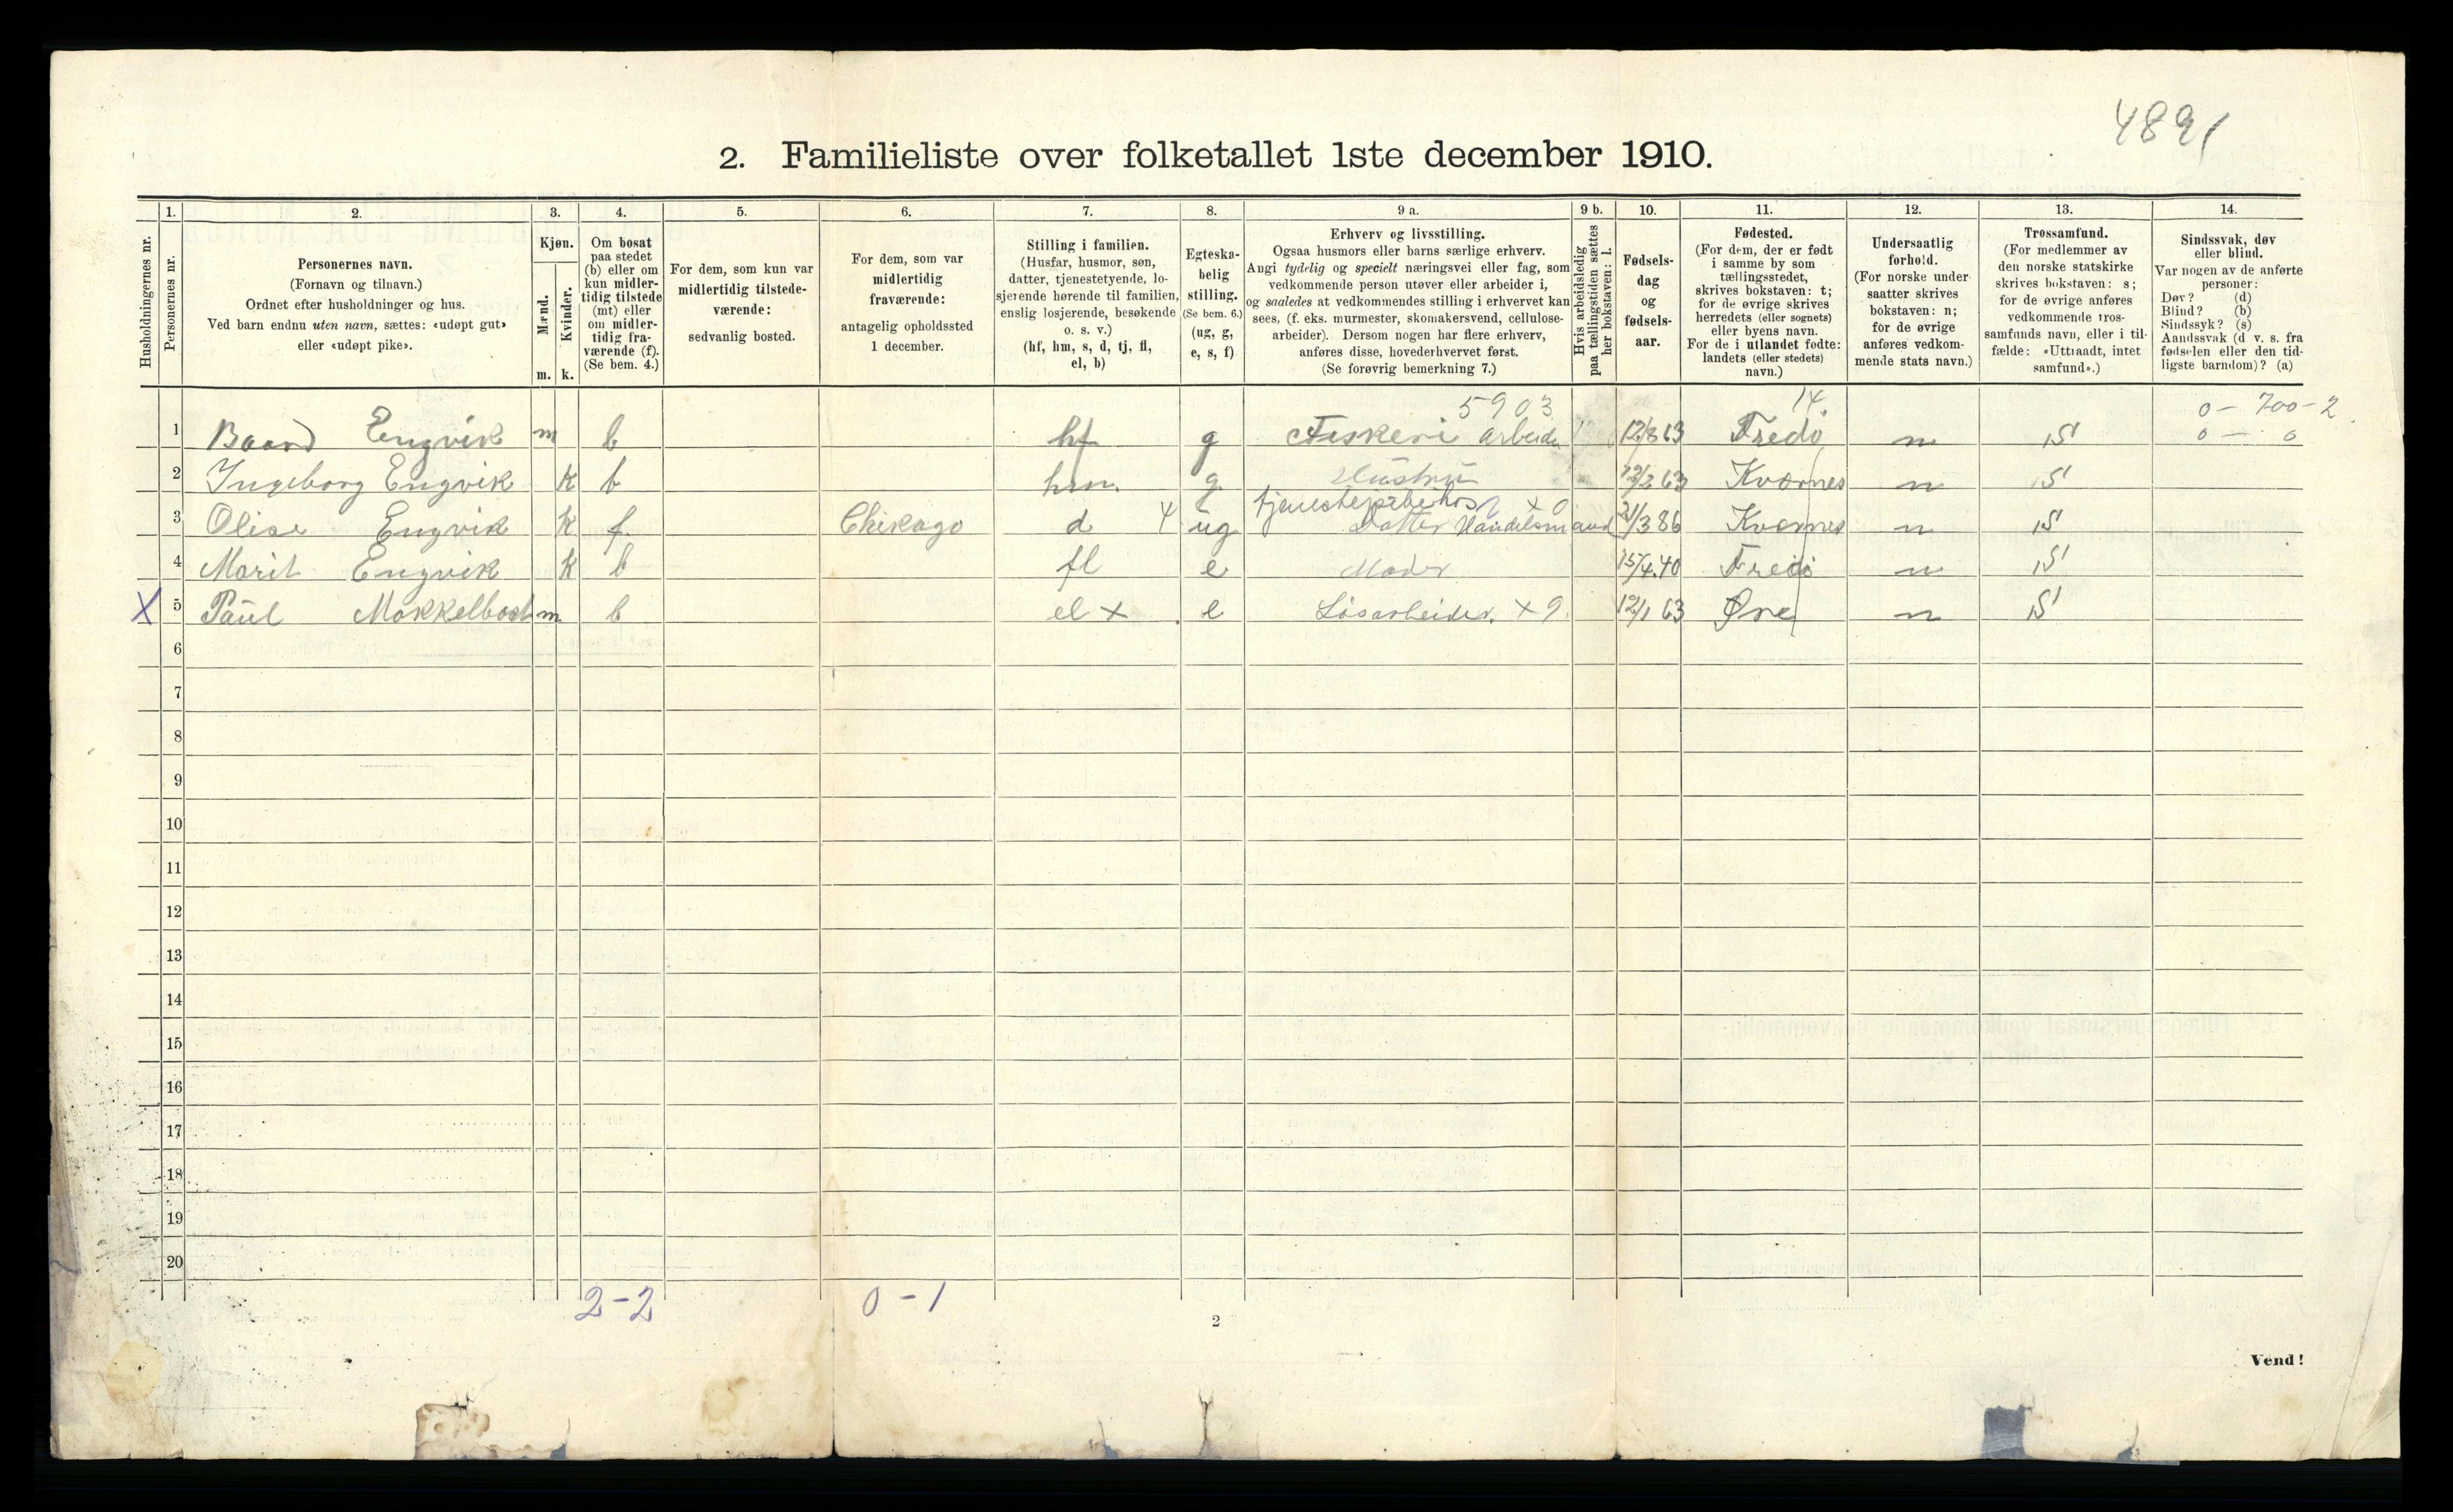 4891
2. Familieliste over folketallet 1ste december 1910.
1. 2. 3. 4. 5. 6. 7. 8. 9 a. 9 b. 10. 11. 12. 13. 14.
Husholdningernes nr.
Personernes nr.
Personernes navn.
(Fornavn og tilnavn.)
Ordnet efter husholdninger og hus.
Ved barn endnu uten navn, sættes: «udøpt gut»
eller «udøpt pike».
Kjøn.
Mænd.
Kvinder.
m. k.
Om bosat
paa stedet
(b) eller om
kun midler-
tidig tilstede
(mt) eller
om midler-
tidig fra-
værende (f).
(Se bem. 4.)
For dem, som kun var
midlertidig tilstede-
værende:
sedvanlig bosted.
For dem, som var
midlertidig
fraværende:
antagelig opholdssted
1 december.
Stilling i familien.
(Husfar, husmor, søn,
datter, tjenestetyende, lo-
sjerende hørende til familien,
enslig losjerende, besøkende
o. s. v.)
(hf, hm, s, d, tj, fl,
el, b)
Egteska-
belig
stilling.
(Se bem. 6.)
(ug, g,
e, s, f)
Erhverv og livsstilling.
Ogsaa husmors eller barns særlige erhverv.
Angi tydelig og specielt næringsvei eller fag, som
vedkommende person utøver eller arbeider i,
og saaledes at vedkommendes stilling i erhvervet kan
sees, (f. eks. murmester, skomakersvend, cellulose-
arbeider). Dersom nogen har flere erhverv,
anføres disse, hovederhvervet først.
(Se forøvrig bemerkning 7.)
Hvis arbeidsledig
paa tællingstiden sættes
her bokstaven: l.
Fødsels-
dag
og
fødsels-
aar.
Fødested.
(For dem, der er født
i samme by som
tællingsstedet,
skrives bokstaven: t;
for de øvrige skrives
herredets (eller sognets)
eller byens navn.
For de i utlandet fødte:
landets (eller stedets)
navn.)
Undersaatlig
forhold.
(For norske under-
saatter skrives
bokstaven: n;
for de øvrige
anføres vedkom-
mende stats navn.)
Trossamfund.
(For medlemmer av
den norske statskirke
skrives bokstaven: s;
for de øvrige anføres
vedkommende tros-
samfunds navn, eller i til-
fælde: «Uttraadt, intet
samfund».)
Sindssvak, døv
eller blind.
Var nogen av de anførte
personer:
Døv? (d)
Blind? (b)
Sindssyk? (s)
Aandssvak (d. v. s. fra
fødselen eller den tid-
ligste barndom)? (a)
5903 14. 0 - 700 - 2
1 Baard Engvik m b hf g Fiskeri arbeider 12/8 63 Fredö n S 0 - 0
2 Ingeborg Engvik k b hm. g Hustru 12/2 63 Kvernes n S
tjenestepike hos x 0
3 Olise Engvik k f. Chikago d 4 ug Datter Handelsmand 21/3 86 Kvernes n S
4 Marit Engvik k b fl e Moder 15/4.40 Fredö n S
X 5 Paul Mokkelbost m b el x e Løsarbeider. x 9. 12/1 63 Øre n S
6
7
8
9
10
11
12
13
14
15
16
17
18
19
20
2-2 0-1
2
Vend!